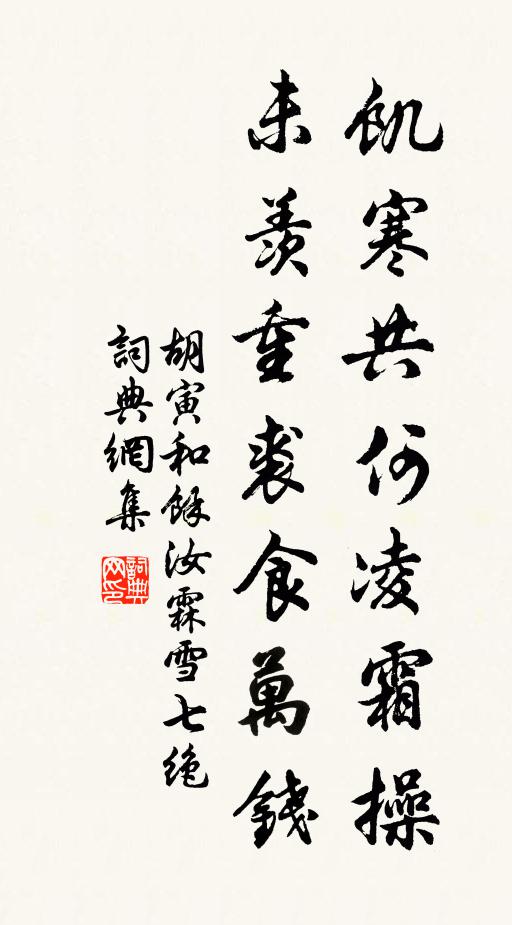 飢寒共何凌霜操
未羨重裘食萬錢
胡寅和餘汝霖雪七绝
詞典網集
詞典网印